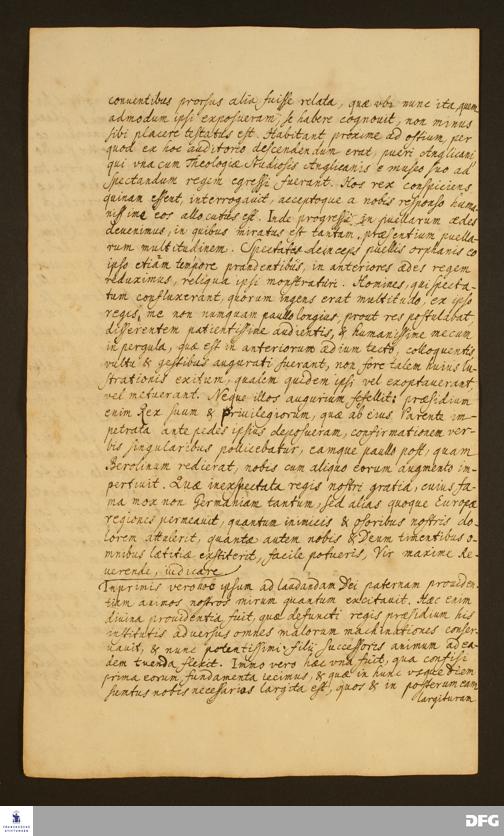 conventibus prorsus alia fuisse relata, quæ ubi nunc ita, quem
admodum ipsi exposueram, se habere cognovit, non minus
sibi placere testatus est. Habitant proxime ad ostium, per
quod ex hoc auditorio descendendum erat, pueri Anglicani
qui una cum Theologiæ studiosis Anglicanis e museo suo ad
spectandum regem egressi fuerant. Hos rex conspiciens
quinam essent, interrogavit, acceptoque a nobis responso huma
nissime eos allocutus est. Inde progressi in puellarum ædes
devenimus, in quibus miratus est tantam, præsentium puella-
rum multitudinem. Spectatis deinceps puellis orphanis eo
ipso etiam tempore prandentibus, in anteriores ædes regem
reduximus, reliqua ipsi monstraturi. Homines, qui specta-
tum confluxerant, quorum ingens erat multitudo, ex ipso
regis, me non nunquam paullo longius, prout res postulabat
disserentem patientissime audientis, & humanissime mecum
in pergula, quæ est in anteriorum ædium tecto, colloquentis
vultu & gestibus augurati fuerant, non fore talem huius lu-
strationis exitum, qualem quidem ipsi vel exoptaverant
vel metuerant. Neque illos augurium fefellit: præsidium
enim Rex suum & privilegiorum, quæ ab eius Parente im-
petrata ante pedes ipsius deposueram, confirmationem ver-
bis singularibus pollicebatur, eamque paullo post, quam
Berolinum redierat, nobis cum aliquo eorum augmento im-
pertivit. Quæ inexspectata regis nostri gratia, cuius fa-
ma mox non Germaniam tantum, sed alias quoque Europæ
regiones permeavit, quantum inimicis & osoribus nostris do-
lorem attulerit, quantæ autem nobis & Deum timentibus o-
mnibus lætitiæ exstiterit, facile poteris, Vir maxime Re-
verende, iudicare.
Inprimis vero hoc ipsum ad laudandam Dei paternam providen-
tiam animos nostros mirum quantum excitavit. Hæc enim
divina providentia fuit, quæ defuncti regis præsidium his
institutis adversus omnes malorum machinationes conser-
vavit, & nunc potentissimi filii successoris animum ad ea-
dem tuenda flexit. Immo vero hæc una fuit, qua confisi
prima eorum fundamenta iecimus, & quæ in hunc usque diem
sumtus nobis necessarios largita est, quos & in posterum eam
largituram
FRANCKESCHE
STIFTUNGEN
DFG